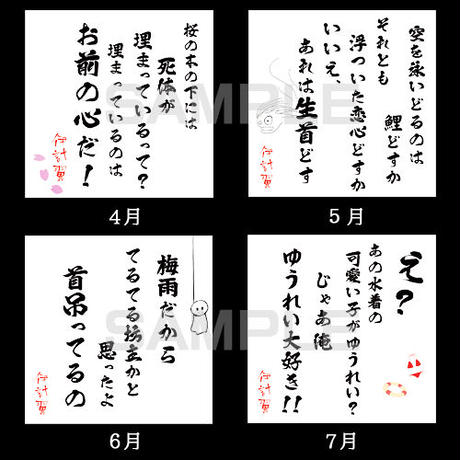 桜の木の下には
死体が
埋まっているって？
埋まっているのは
お前の心だ！
伊計翼
SAMPLE
4月
空を泳いどるのは
鯉どすか
それとも
浮ついた恋心どすか
いいえ、
あれは生首どす
伊計翼
SAMPLE
5月
梅雨だから
てるてる坊主かと
思ったよ
首吊ってるの
伊計翼
SAMPLE
6月
え？
あの水着の
可愛い子がゆうれい？
じゃあ俺
ゆうれい大好き！！
伊計翼
SAMPLE
7月